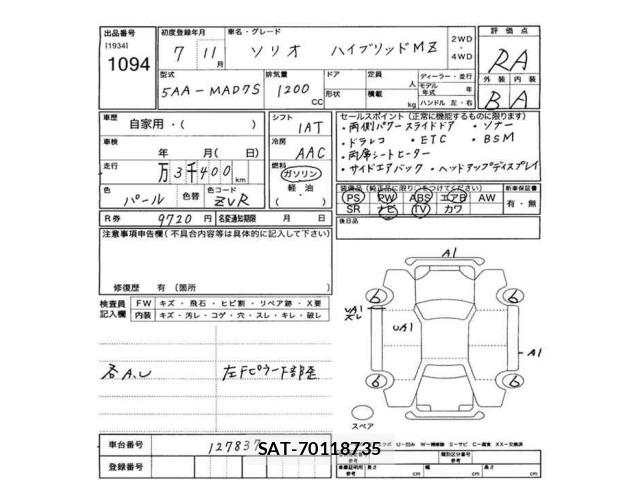 出品番号
[1934]
1094
初度登録年月
7 11 月
車名・グレード
ソリオ ハイブリッドMZ
2WD
・
4WD
評価点
RA
外装 内装
B A
型式
5AA-MAD7S
排気量
1200 CC
ドア
形状
定員 人
積載 kg
ディーラー・並行
モデル年式 年
ハンドル 左・右
車歴
自家用・( )
シフト
IAT
車検
年 月( 日)
冷房
AAC
走行
万3千400 km
燃料
ガソリン
軽油
( )
色
パール
色替
色コード
ZVR
セールスポイント(正常に機能するものに限ります)
・両側パワースライドドア ・ソナー
・ドラレコ ・ETC ・BSM
・両席シートヒーター
・サイドエアバック ・ヘッドアップディスプレイ
装備品(純正品に限り○をつけてください)
新車保証書
PS PW ABS エアB AW
SR ナビ TV カワ
有・無
R券
9720 円
名変通知期限 月 日
後日品
注意事項申告欄(不具合内容等は具体的に記入して下さい)
修復歴 有(箇所 )
検査員
記入欄
FW キズ・飛石・ヒビ割・リペア跡・X要
内装 キズ・汚レ・コゲ・穴・スレ・キレ・破レ
各A.U
A1
6 6
UA1
スレ
UA1
A1
6 6
スペア
車台番号
127837
SAT-70118735
登録番号
長さ cm 幅 cm 高さ cm